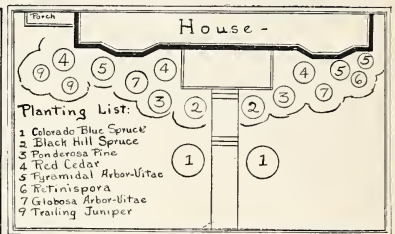 Porch
House -
4 5 4 4 5 5
9 9 7 7 6
3 2 2 3
1 1
Planting List:
1 Colorado Blue Spruce
2 Black Hill Spruce
3 Ponderosa Pine
4 Red Cedar
5 Pyramidal Arbor-Vitae
6 Retinispora
7 Globosa Arbor-Vitae
9 Trailing Juniper